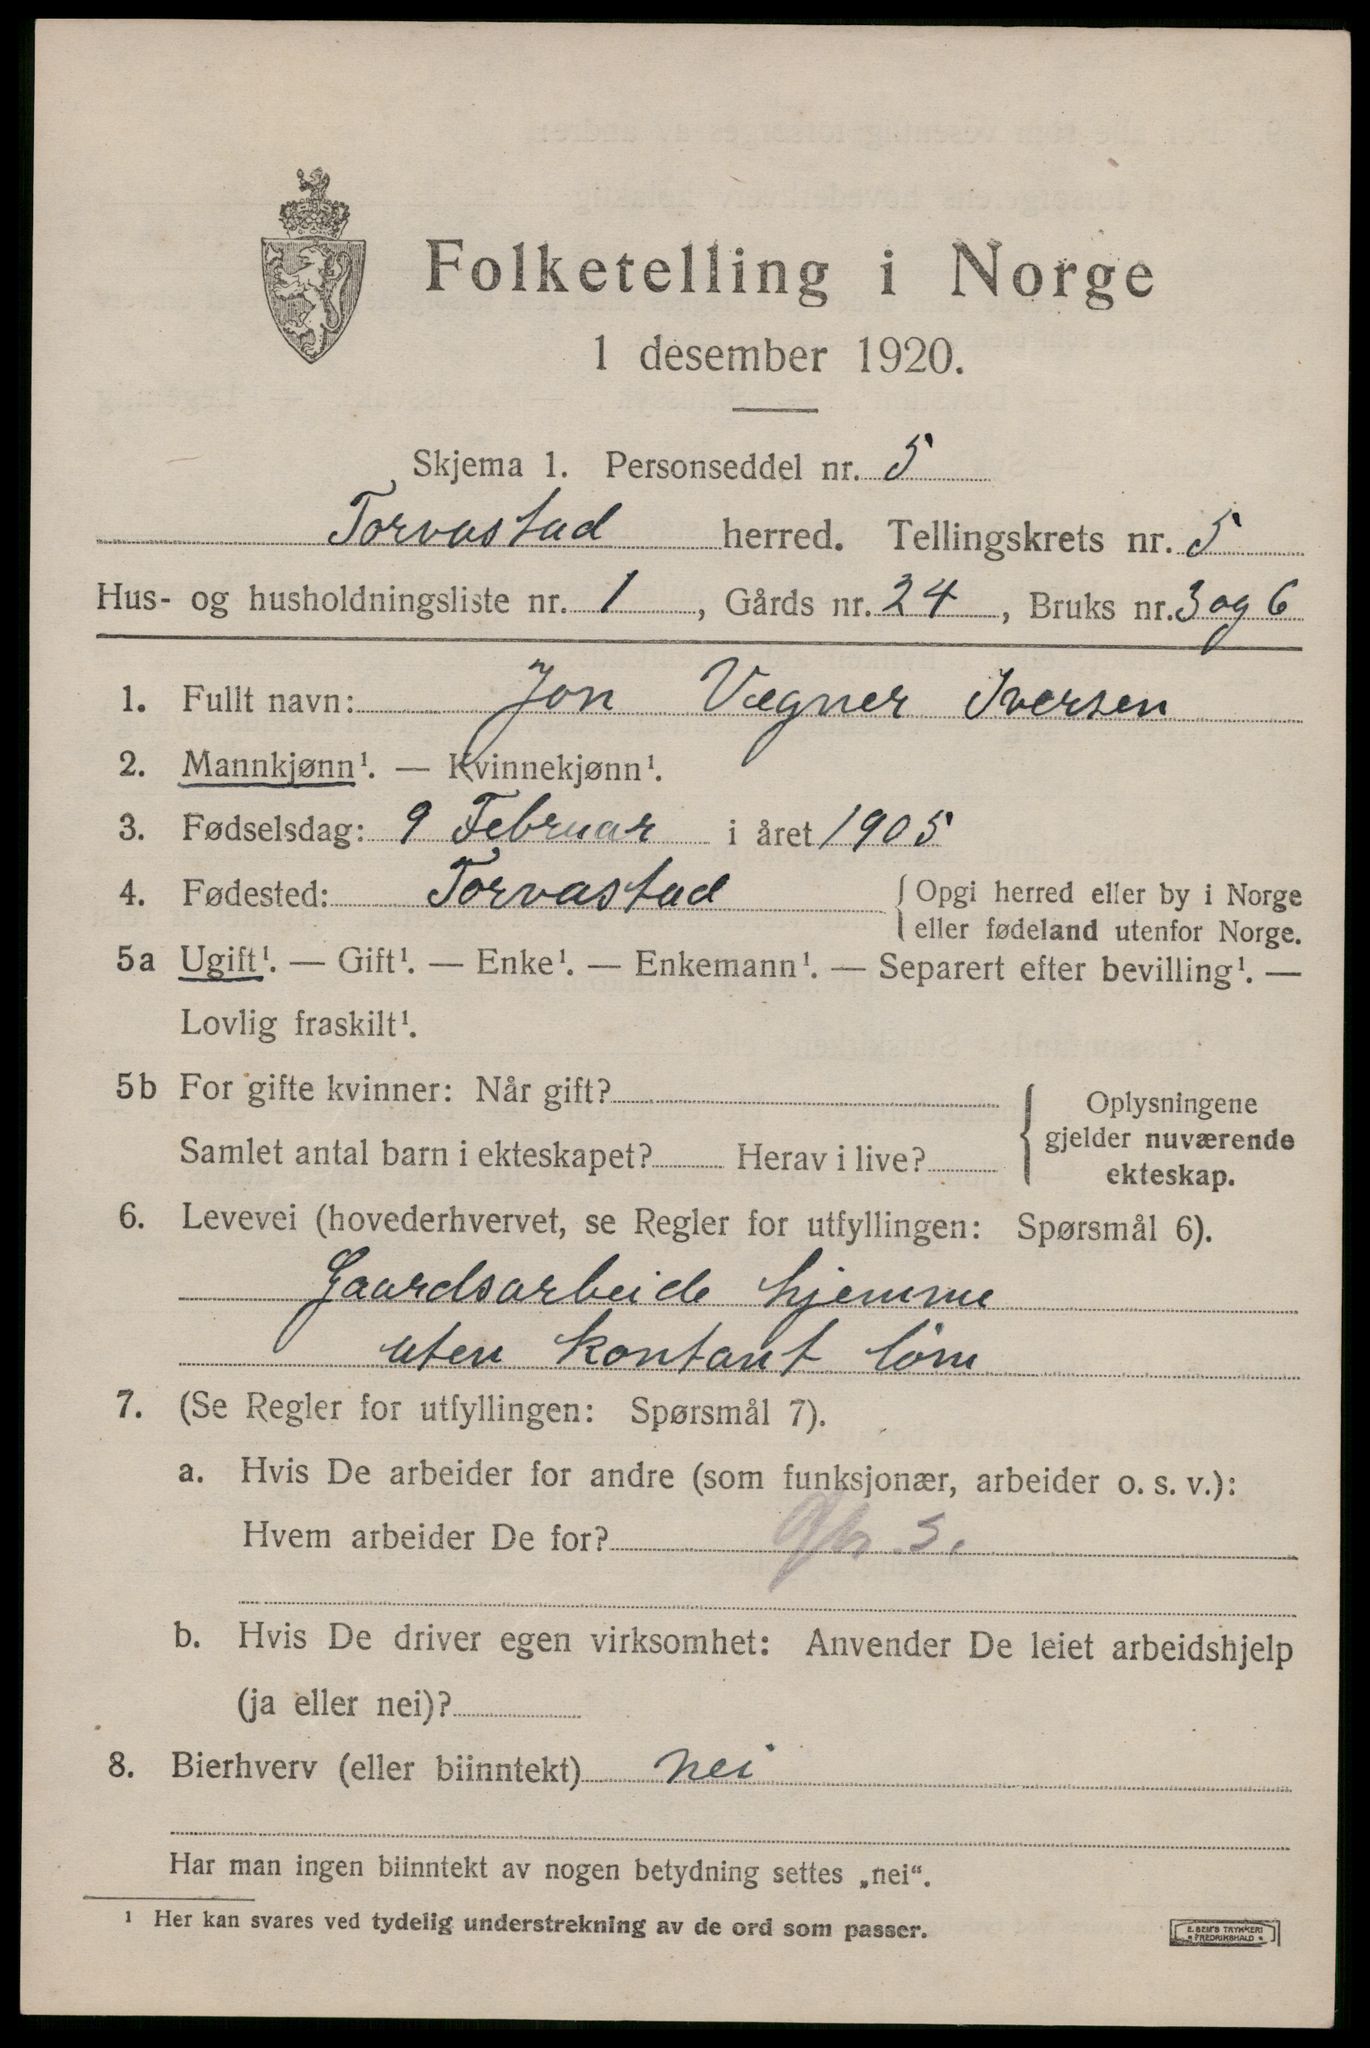 Folketelling i Norge
1 desember 1920.
Skjema 1. Personseddel nr. 5
Torvastad herred. Tellingskrets nr. 5
Hus- og husholdningsliste nr. 1, Gårds nr. 24, Bruks nr. 3 og 6
1. Fullt navn: Jon Vegner Iversen
2. Mannkjønn¹. — Kvinnekjønn¹.
3. Fødselsdag: 9 Februar i året 1905
4. Fødested: Torvastad { Opgi herred eller by i Norge
eller fødeland utenfor Norge.
5a Ugift¹. — Gift¹. — Enke¹. — Enkemann¹. — Separert efter bevilling¹. —
Lovlig fraskilt¹.
5b For gifte kvinner: Når gift?
Samlet antal barn i ekteskapet? Herav i live?
Oplysningene
gjelder nuværende
ekteskap.
6. Levevei (hovederhvervet, se Regler for utfyllingen: Spørsmål 6).
Gaardsarbeide hjemme
uten kontant lønn
7. (Se Regler for utfyllingen: Spørsmål 7).
a. Hvis De arbeider for andre (som funksjonær, arbeider o. s. v.):
Hvem arbeider De for?
b. Hvis De driver egen virksomhet: Anvender De leiet arbeidshjelp
(ja eller nei)?
8. Bierhverv (eller biinntekt) nei
Har man ingen biinntekt av nogen betydning settes „nei“.
¹ Her kan svares ved tydelig understrekning av de ord som passer.
E. SEM'S TRYKKERI
FREDRIKSHALD